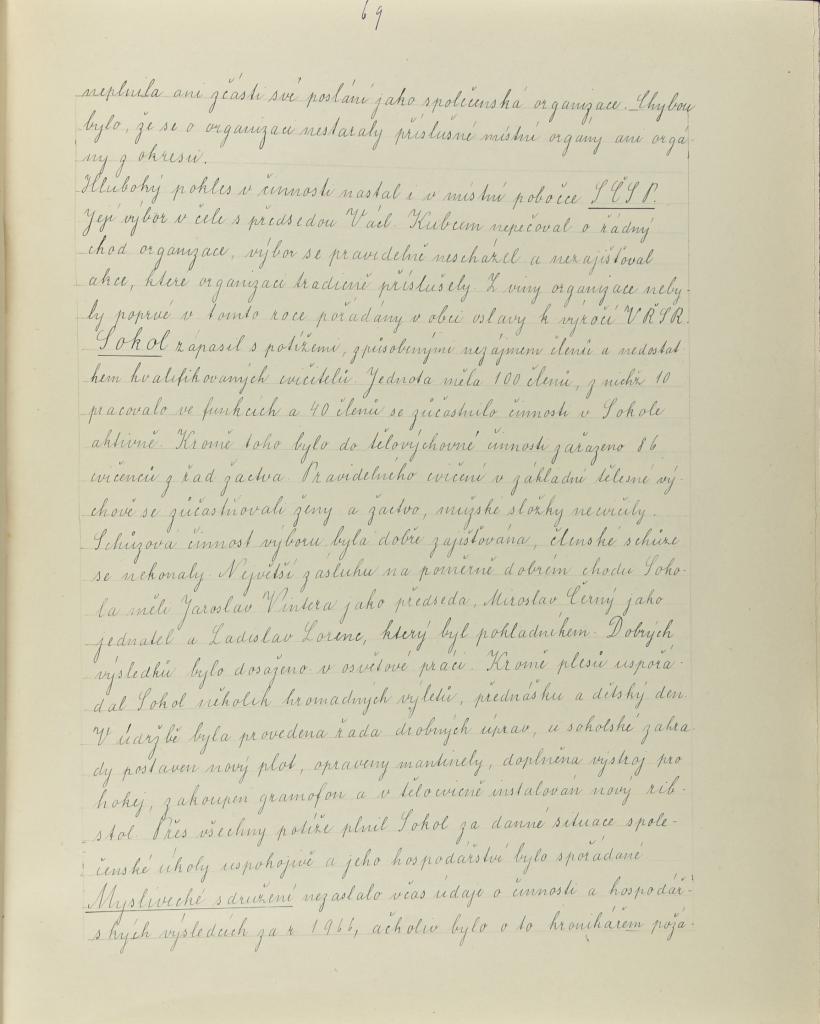 69
neplnila ani zčásti své poslání jako společenská organizace. Chybou
bylo, že se o organizaci nestaraly příslušné místní orgány ani orgá-
ny z okresu.
Hluboký pokles v činnosti nastal i v místní pobočce SČSP.
Její výbor v čele s předsedou Václ. Kubcem nepečoval o řádný
chod organizace, výbor se pravidelně nescházel a nezajišťoval
akce, které organizaci tradičně příslušely. Z viny organizace neby-
ly poprvé v tomto roce pořádány v obci oslavy k výročí VŘSR.
Sokol zápasil s potížemi, způsobenými nezájmem členů a nedostat
kem kvalifikovaných cvičitelů. Jednota měla 100 členů, z nichž 10
pracovalo ve funkcích a 40 členů se zúčastnilo činnosti v Sokole
aktivně. Kromě toho bylo do tělovýchovné činnosti zařazeno 86
cvičenců z řad žactva. Pravidelného cvičení v základní tělesné vý-
chově se zúčastňovali ženy a žactvo, mužské složky necvičily.
Schůzová činnost výboru byla dobře zajišťována, členské schůze
se nekonaly. Největší zásluhu na poměrně dobrém chodu Soko-
la měli Jaroslav Vintera jako předseda, Miroslav Černý jako
jednatel a Ladislav Lorenc, který byl pokladníkem. Dobrých
výsledků bylo dosaženo v osvětové práci. Kromě plesů uspořá-
dal Sokol několik hromadných výletů, přednášku a dětský den.
V údržbě byla provedena řada drobných úprav, u sokolské zahra
dy postaven nový plot, opraveny mantinely, doplněna výstroj pro
hokej, zakoupen gramofon a v tělocvičně instalován nový rib-
stol. Přes všechny potíže plnil Sokol za danné situace spole-
čenské úkoly uspokojivě a jeho hospodářství bylo spořádané.
Myslivecké sdružení nezaslalo včas údaje o činnosti a hospodář-
ských výsledcích za r. 1966, ačkoliv bylo o to kronikářem požá-